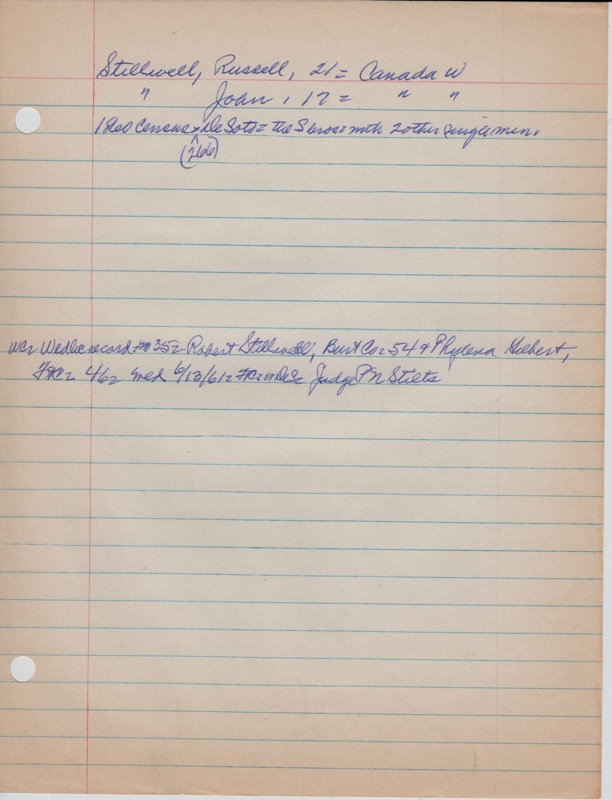 Stillwell, Russell, 21 = Canada W
" John, 17 = " "
1860 Census = De Soto = the S bros = with 2 other single men.
(266)
WC = Wed lic record = #352 = Robert Stillwell, Burt Co = 54 + Phylena Hilbert,
FtC = 46 = wed 6/13/61 = FtC = Judge PN Stilts